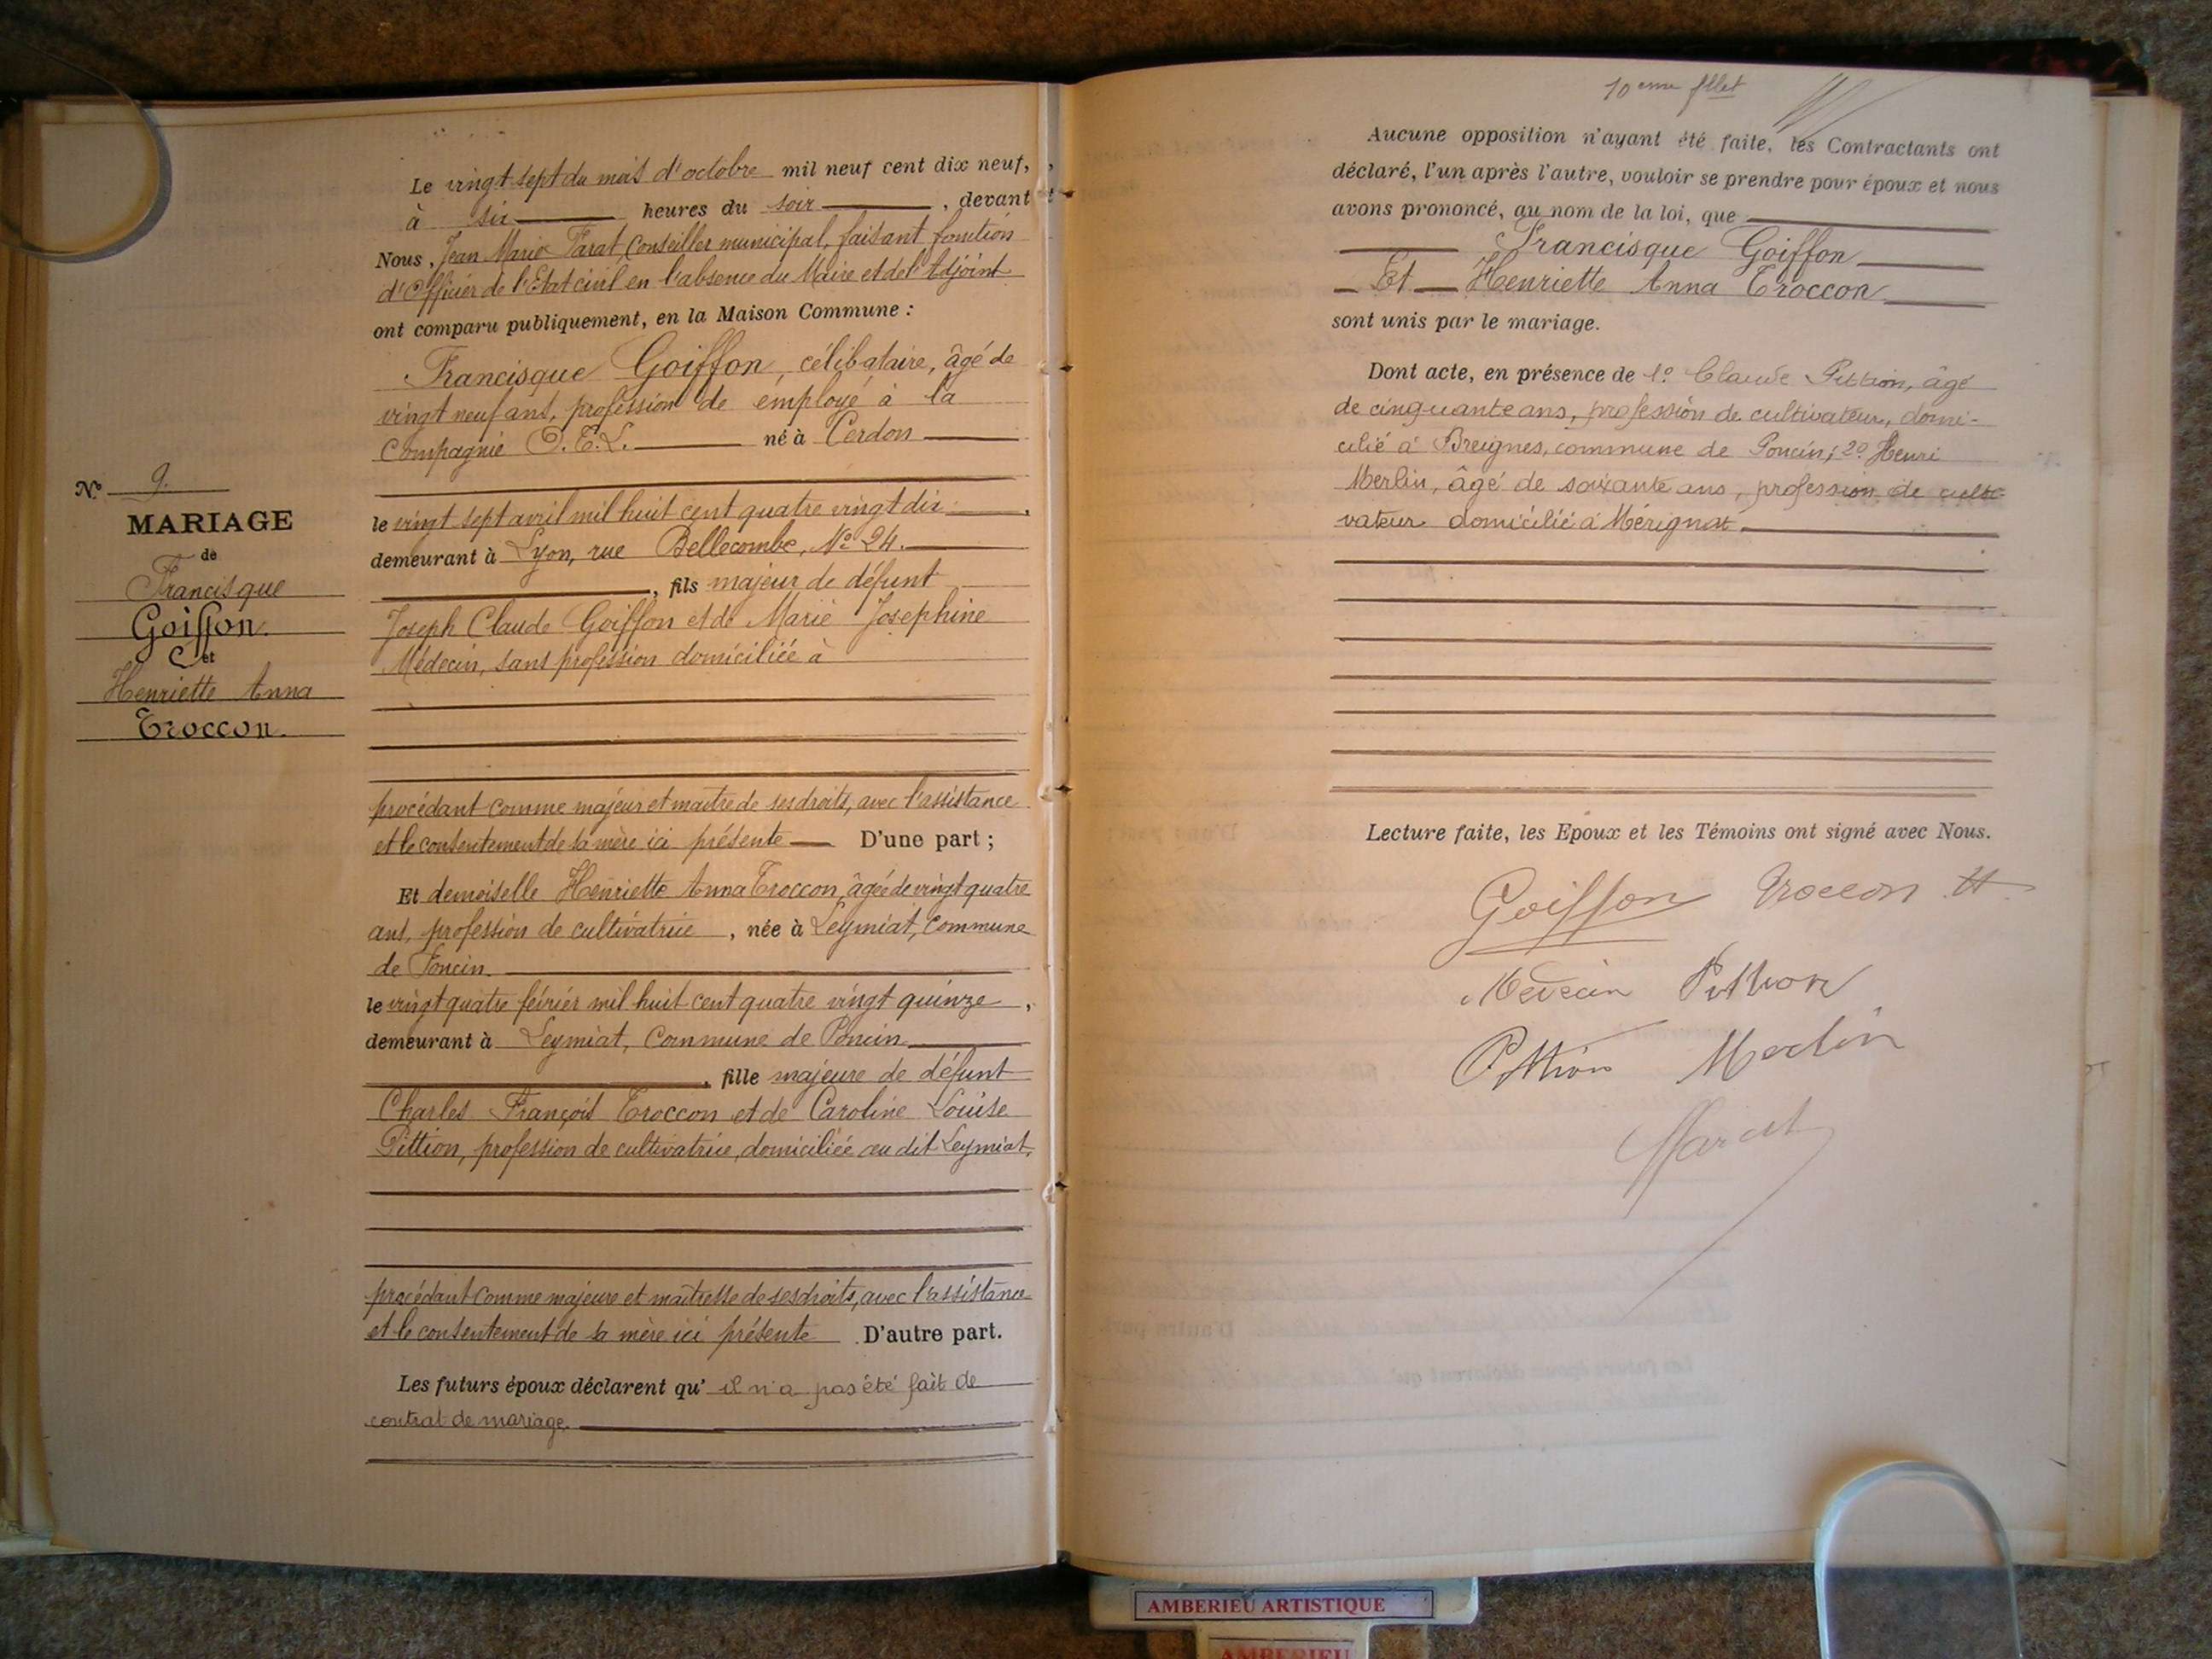 Le vingt sept du mois d'octobre mil neuf cent dix neuf,
à six heures du soir, devant
Nous, Jean Marie Farat, Conseiller municipal, faisant fonction
d'Officier de l'Etat civil en l'absence du Maire et de l'Adjoint
ont comparu publiquement, en la Maison Commune :
Francisque Goiffon, célibataire, âgé de
vingt neuf ans, profession de employé à la
Compagnie O.T.L. né à Cerdon
le vingt sept avril mil huit cent quatre vingt dix,
demeurant à Lyon, rue Bellecombe, Nº 24.
, fils majeur de défunt
Joseph Claude Goiffon et de Marie Josephine
Médecin, sans profession domiciliée à
procédant comme majeur et maitre de ses droits, avec l'assistance
et le consentement de sa mère ici présente D'une part ;
Et demoiselle Henriette Anna Troccon, âgée de vingt quatre
ans, profession de cultivatrice, née à Leymiat, Commune
de Poncin.
le vingt quatre février mil huit cent quatre vingt quinze,
demeurant à Leymiat, Commune de Poncin
, fille majeure de défunt
Charles François Troccon et de Caroline Louise
Pittion, profession de cultivatrice, domiciliée au dit Leymiat.
procédant comme majeure et maitresse de ses droits, avec l'assistance
et le consentement de sa mère ici présente. D'autre part.
Les futurs époux déclarent qu'il n'a pas été fait de
contrat de mariage.
Nº 9.
MARIAGE
de
Francisque
Goiffon.
et
Henriette Anna
Troccon.
10eme fllet
Aucune opposition n'ayant été faite, les Contractants ont
déclaré, l'un après l'autre, vouloir se prendre pour époux et nous
avons prononcé, au nom de la loi, que
Francisque Goiffon
Et Henriette Anna Troccon
sont unis par le mariage.
Dont acte, en présence de 1º Claude Pittion, âgé
de cinquante ans, profession de cultivateur, domi-
cilié à Breignes, commune de Poncin; 2º Henri
Merlin, âgé de soixante ans, profession de culti-
vateur domicilié à Mérignat.
Lecture faite, les Epoux et les Témoins ont signé avec Nous.
Goiffon Troccon H
Médecin Pittion
Pittion Merlin
AMBERIEU ARTISTIQUE
AMBERIEU